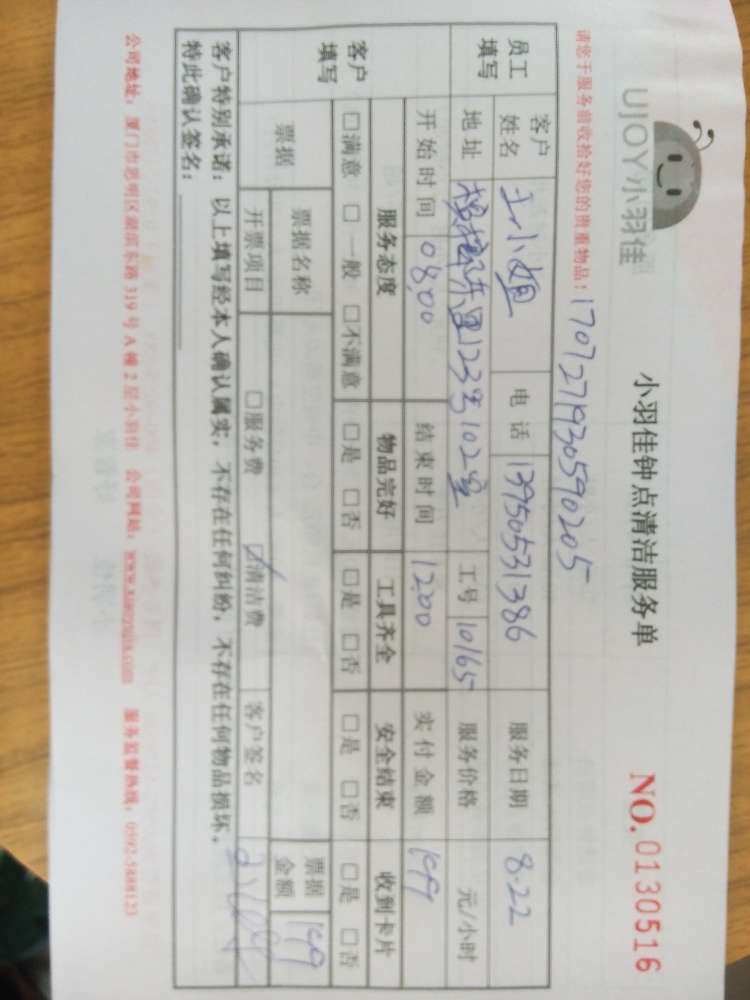 UJOY小羽佳
小羽佳钟点清洁服务单
NO.0130516
请您于服务前收拾好您的贵重物品:
1707271930590205
员工填写 客户姓名 王小姐 电话 13950531386 服务日期 8.22
地址 123号102室 工号 10165 服务价格 元/小时
开始时间 08:00 结束时间 12:00 实付金额 149
客户填写 服务态度 物品完好 工具齐全 安全结束 收到卡片
□满意 □一般 □不满意 □是 □否 □是 □否 □是 □否 □是 □否
票据 票据名称 票据金额 149
开票项目 □服务费 ☑清洁费 客户签名
客户特别承诺:以上填写经本人确认属实,不存在任何纠纷,不存在任何物品损坏,
特此确认签名:
公司地址:厦门市思明区湖滨东路319号A幢2层小羽佳 公司网站:www.xiaoyujia.com 服务监督热线:0592-5888123